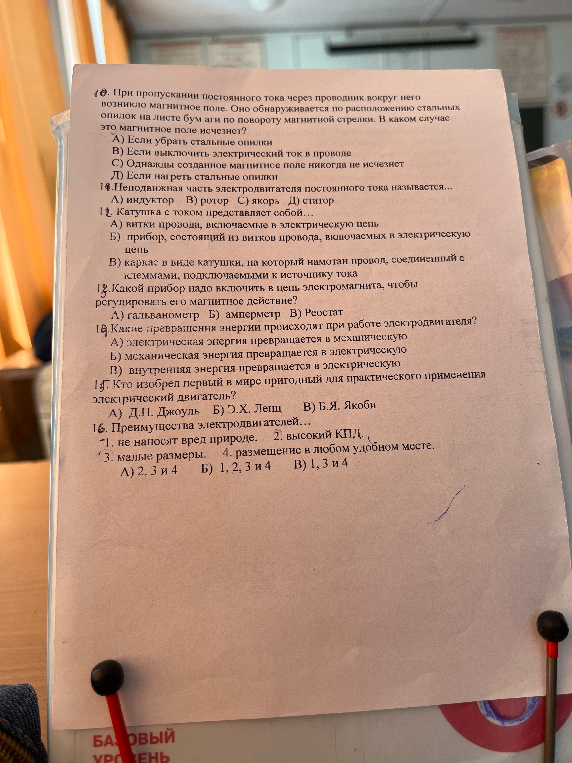 10. При пропускании постоянного тока через проводник вокруг него
возникло магнитное поле. Оно обнаруживается по расположению стальных
опилок на листе бум аги по повороту магнитной стрелки. В каком случае
это магнитное поле исчезнет?
А) Если убрать стальные опилки
В) Если выключить электрический ток в проводе
С) Однажды созданное магнитное поле никогда не исчезнет
Д) Если нагреть стальные опилки
11.Неподвижная часть электродвигателя постоянного тока называется...
А) индуктор В) ротор С) якорь Д) статор
12. Катушка с током представляет собой…
А) витки провода, включаемые в электрическую цепь
Б) прибор, состоящий из витков провода, включаемых в электрическую
цепь
В) каркас в виде катушки, на который намотан провод, соединенный с
клеммами, подключаемыми к источнику тока
13.Какой прибор надо включить в цепь электромагнита, чтобы
регулировать его магнитное действие?
А) гальванометр Б) амперметр В) Реостат
14.Какие превращения энергии происходят при работе электродвигателя?
А) электрическая энергия превращается в механическую
Б) механическая энергия превращается в электрическую
В) внутренняя энергия превращается в электрическую
15. Кто изобрел первый в мире пригодный для практического применения
электрический двигатель?
А) Д.П. Джоуль Б) Э.Х. Ленц В) Б.Я. Якоби
16. Преимущества электродвигателей…
1. не наносят вред природе. 2. высокий КПД.
3. малые размеры. 4. размещение в любом удобном месте.
А) 2, 3 и 4 Б) 1, 2, 3 и 4 В) 1, 3 и 4
БАЗОВЫЙ
УРОВЕНЬ